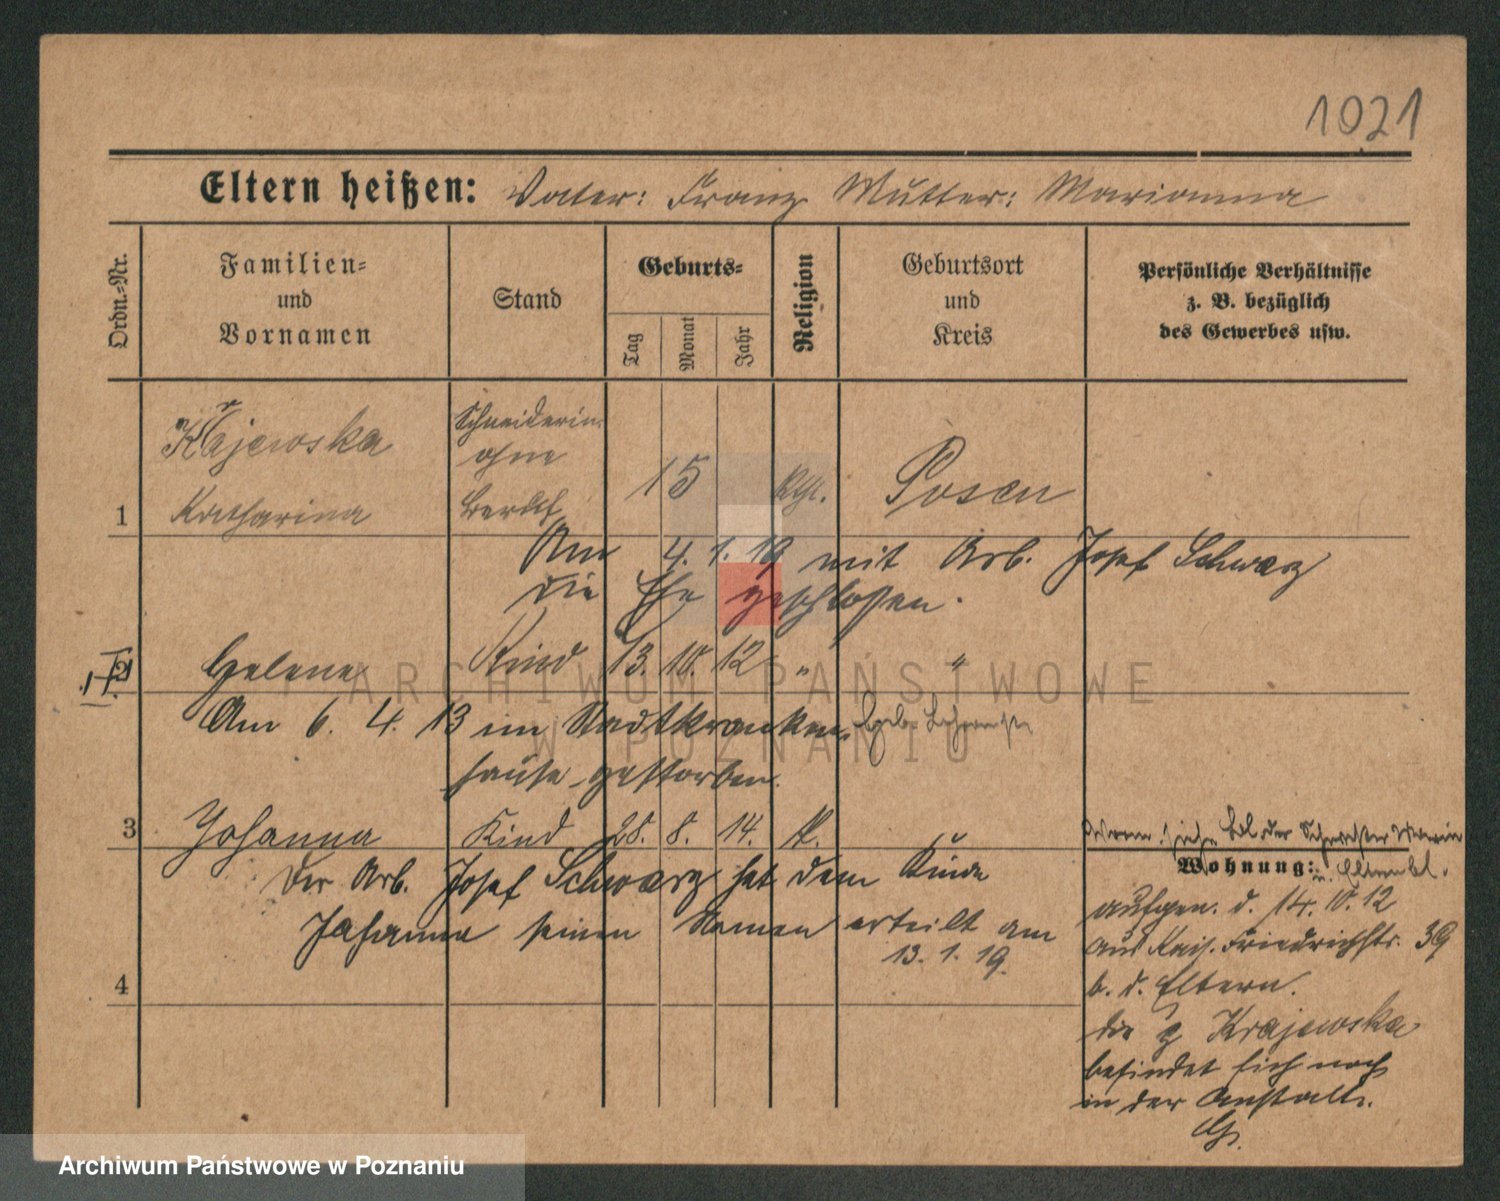 1021
Eltern heißen: Vater: Franz Mutter: Marianna
Ordn.-Nr.
Familien-
und
Vornamen
Stand
Geburts-
Tag
Monat
Jahr
Religion
Geburtsort
und
Kreis
Persönliche Verhältnisse
z. B. bezüglich
des Gewerbes usw.
Krajewska
Schneiderin
ohne
1 Katharina
15
Kth.
Posen
Am 4. 1. 19 mit Arb. Josef Schwarz
die Ehe geschlossen.
2 Helene Kind 13. 10. 12 " "
Am 6. 4. 13 im Stadtkranken-
hause gestorben.
3 Johanna Kind 28. 8. 14. k.
siehe der Schwester
Der Arb. Josef Schwarz hat dem Kinde
Johanna seinen Namen erteilt am
13. 1. 19.
4
Wohnung:
aufgen. d. 14. 10. 12
aus Kais. Friedrichstr. 39
b. d. Eltern.
die Krajewska
befindet sich noch
in der Anstalt.
ARCHIWUM PAŃSTWOWE
W POZNANIU
Archiwum Państwowe w Poznaniu